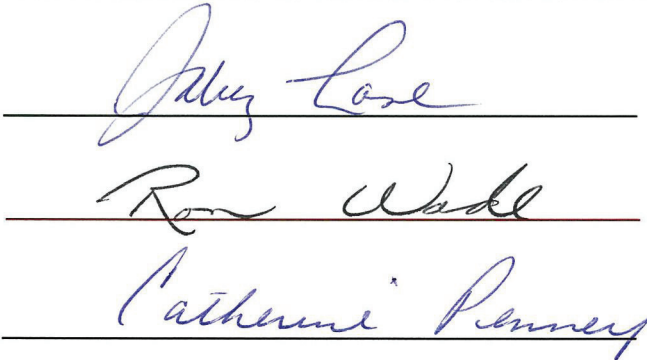 Jabez Lane
Ron Wade
Catherine Penney